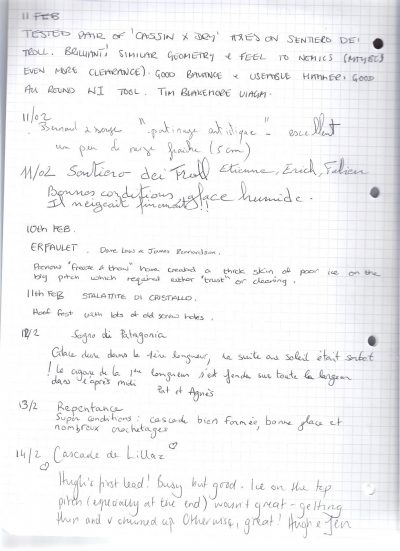 11 FEB
TESTED PAIR OF 'CASSIN X DRY' AXES ON SENTIERO DEI
TROLL. BRILLIANT, SIMILAR GEOMETRY & FEEL TO NOMICS (MAYBE
EVEN MORE CLEARANCE). GOOD BALANCE & USEABLE HAMMER, GOOD
ALL ROUND W I TOOL. TIM BLAKEMORE
11/02
Bernard & Serge "patinage artistique" - excellent
un peu de neige fraîche (5 cm)
11/02 Sentiero dei Troll Etienne, Erich, Fabien
Bonnes conditions, glace humide.
Il neigeait finement!!
10th FEB.
ERFAULET. Dave Low & James Richardson.
Previous "freeze & thaw" have created a thick skin of poor ice on the
big pitch which required either "trust" or cleaning.
11th FEB STALATTITE DI CRISTALLO.
Hoof fest with lots of old screw holes.
12/2 Sogno di Patagonia
Glace dure dans la 1ère longueur, la suite au soleil était sorbet
! Le cigare de la 1ère longueur s'est fendu sur toute la largeur
dans l'après midi Pat et Agnès
13/2 Repentance
Super conditions : cascade bien formée, bonne glace et
nombreux crochetages
14/2 Cascade de Lillaz
Hugh's first lead! Busy but good. Ice on the top
pitch (especially at the end) wasn't great - getting
thin and v churned up. Otherwise, great! Hugh & Jen